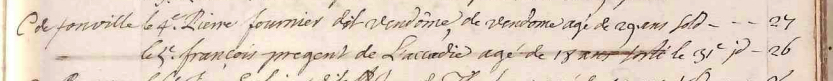 C de fonville le 4.e Pierre fournier dit vendôme de vendome agé de 29 ans sold - - - 27
le 5.e françois pregent de Laccadie agé de 18 ans sorti le 31.e jt - 26